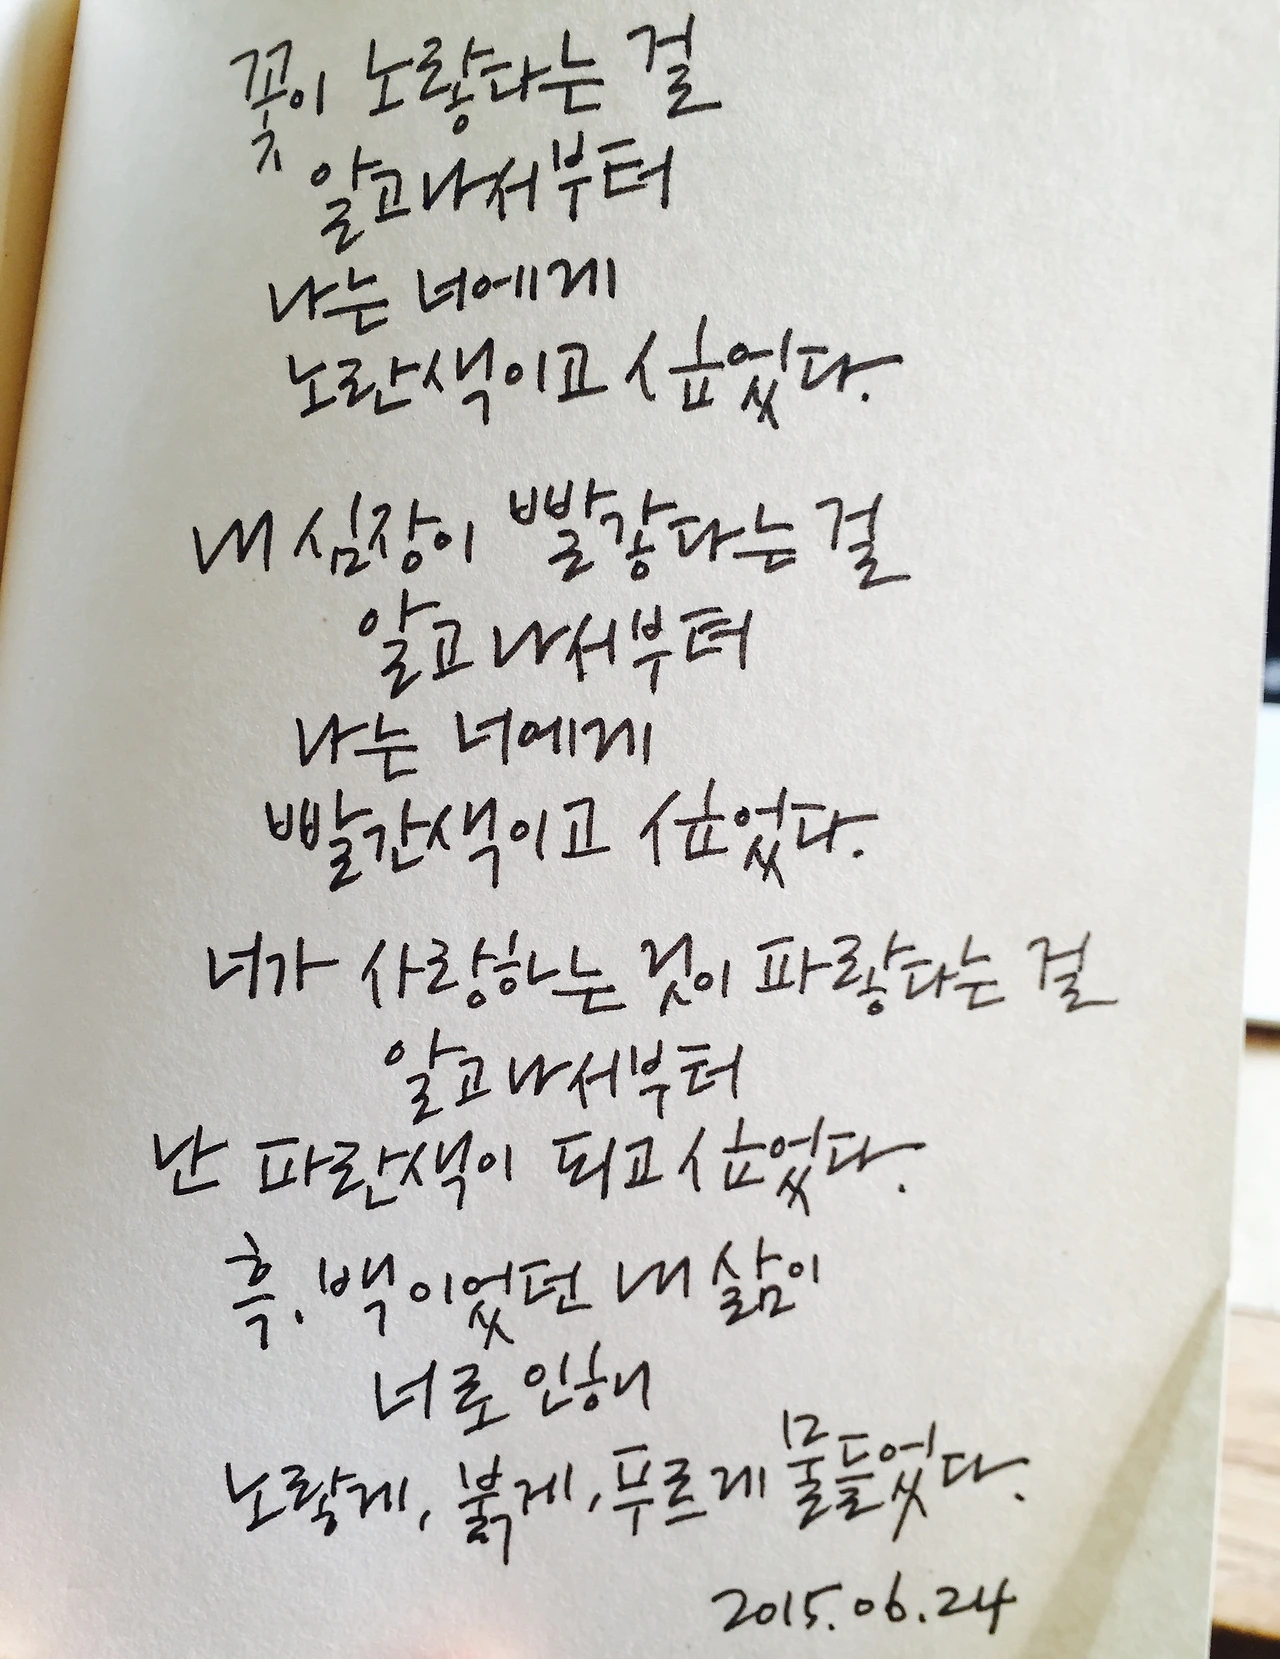 꽃이 노랗다는 걸
알고나서부터
나는 너에게
노란색이고 싶었다.
내 심장이 빨갛다는 걸
알고 나서부터
나는 너에게
빨간색이고 싶었다.
너가 사랑하는 것이 파랗다는 걸
알고 나서부터
난 파란색이 되고 싶었다.
흑, 백이었던 내 삶이
너로 인해
노랗게, 붉게, 푸르게 물들었다.
2015.06.24